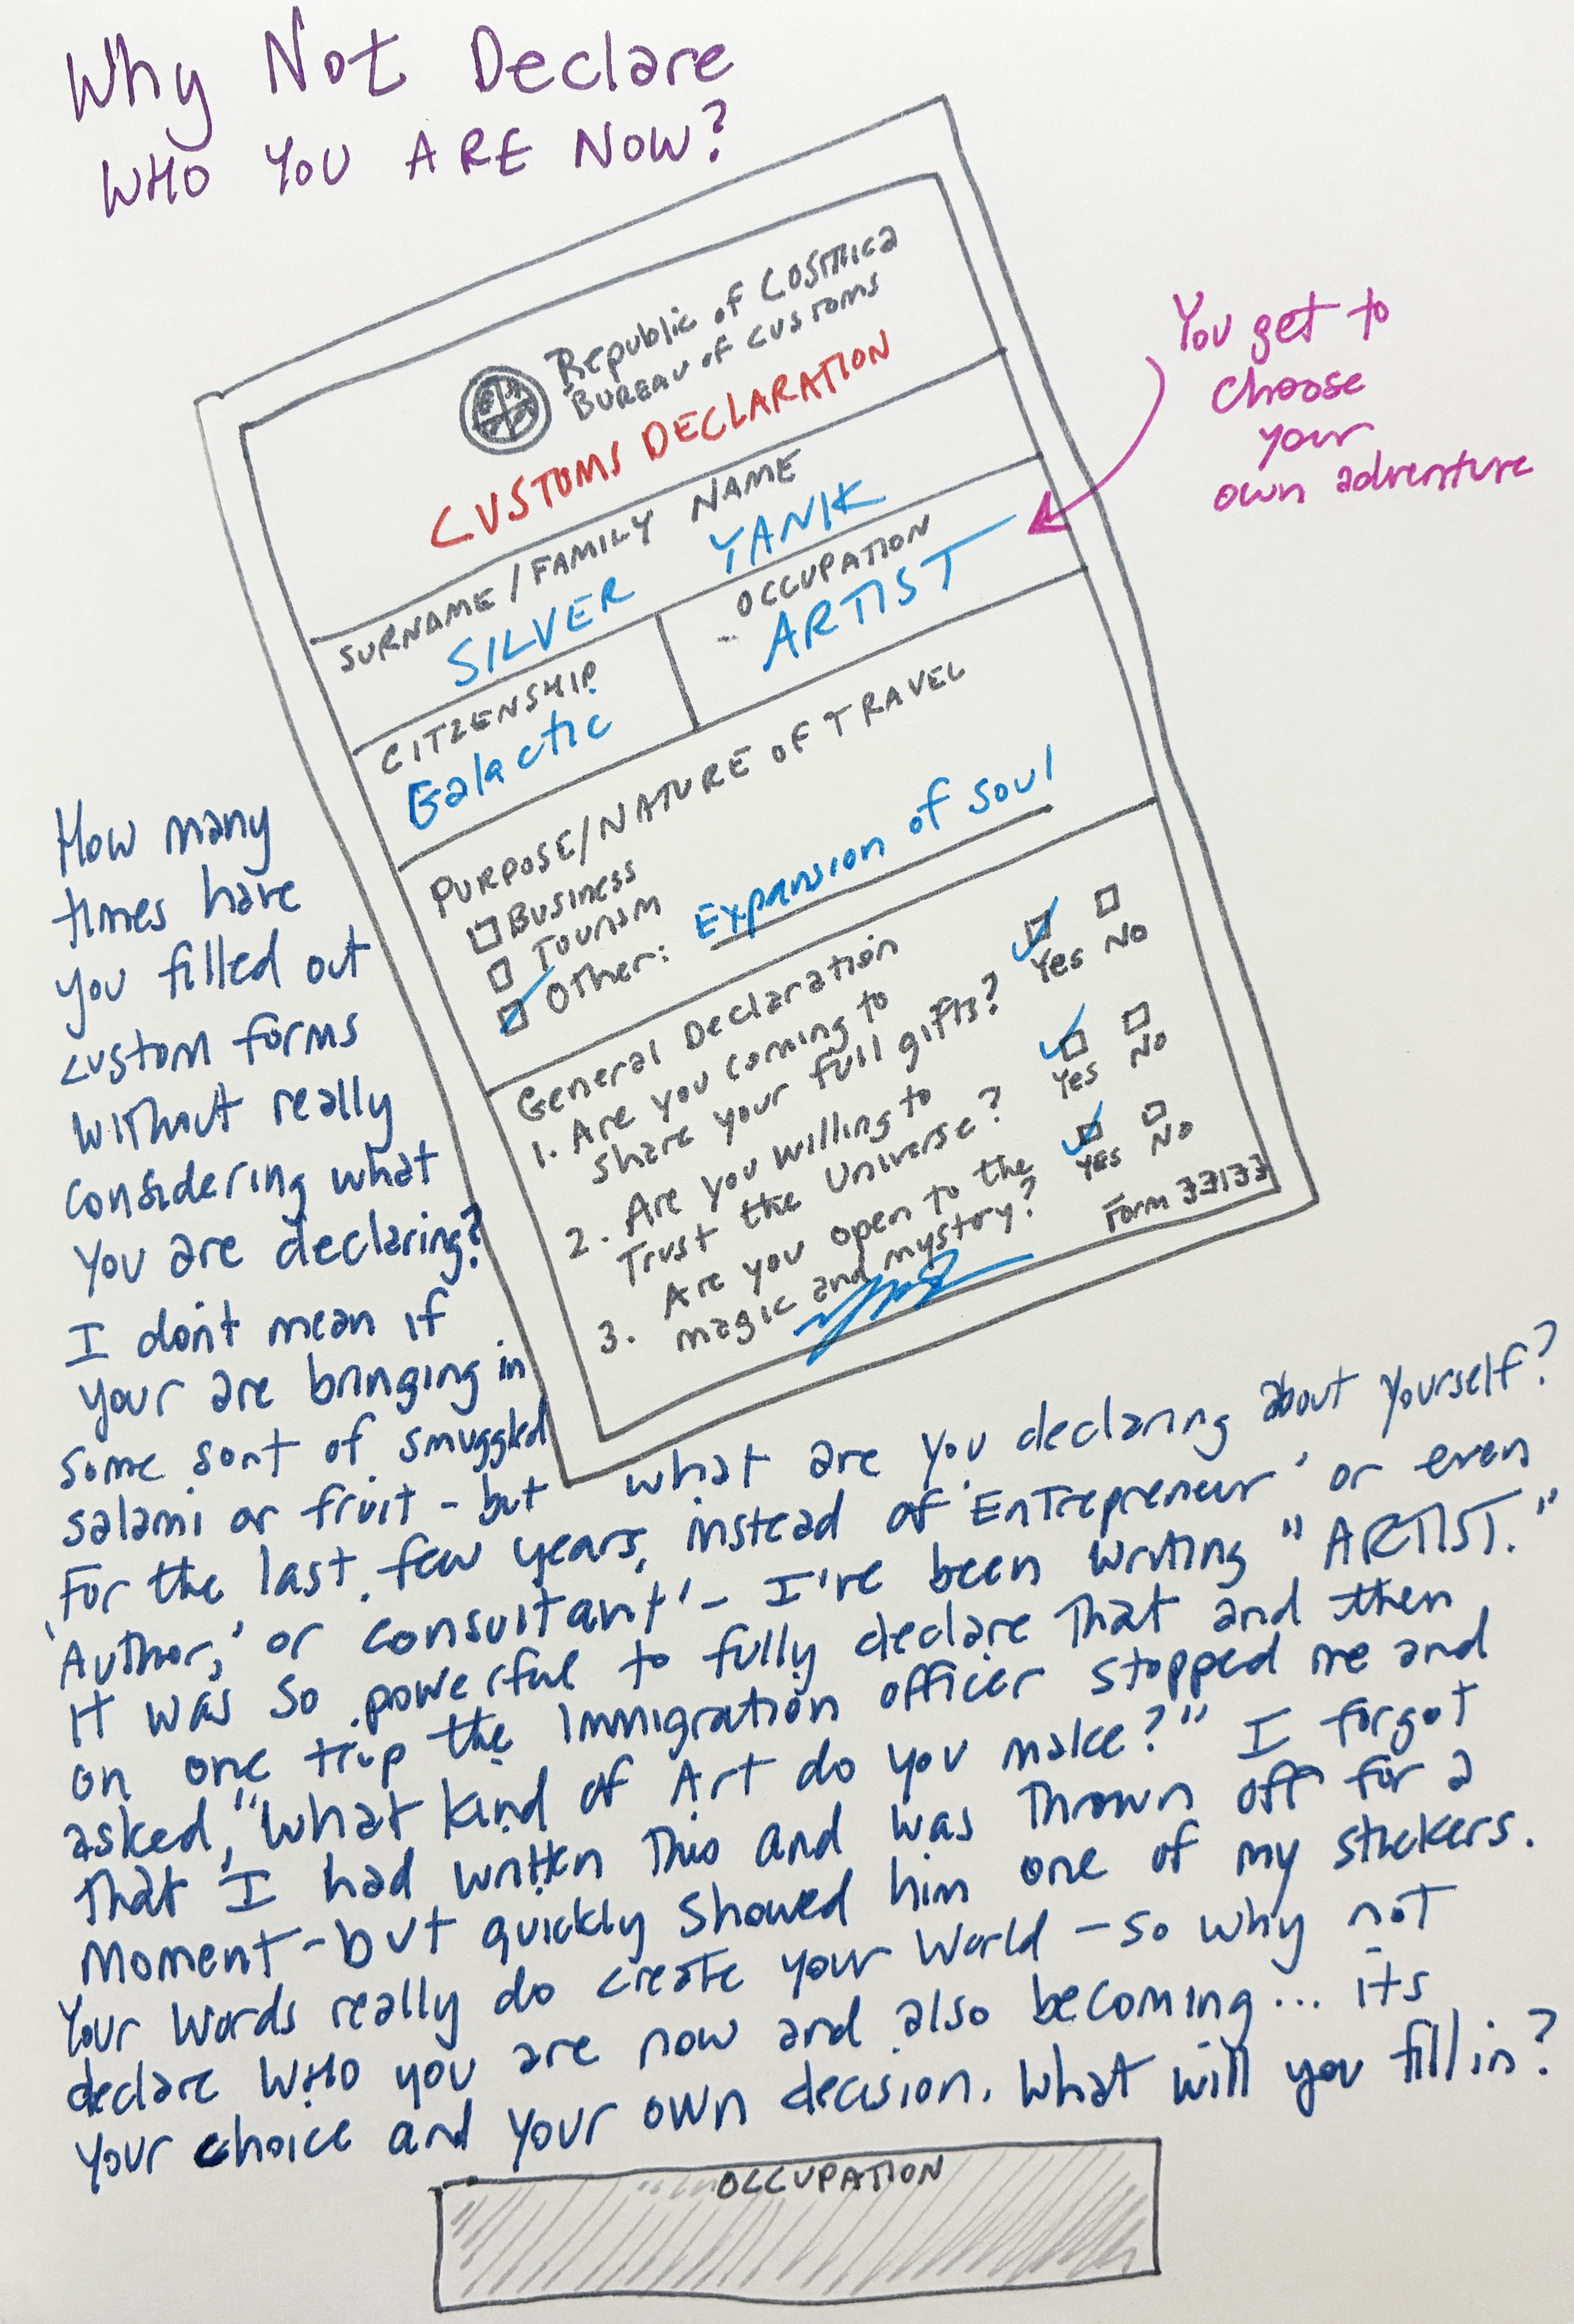 Why Not Declare
WHO YOU ARE NOW?
Republic of COSMica
BUREAU of CUSTOMS
CUSTOMS DECLARATION
SURNAME/FAMILY NAME
SILVER YANIK
CITIZENSHIP
Galactic
OCCUPATION
ARTIST
You get to
choose
your
own adventure
PURPOSE/NATURE OF TRAVEL
Business
Tourism
Other: Expansion of soul
General Declaration
1. Are you coming to
share your full gifts? Yes No
2. Are you willing to
Trust the Universe? Yes No
3. Are you open to the
magic and mystory? Yes No
Form 33133
How many
times have
you filled out
custom forms
without really
considering what
you are declaring?
I don't mean if
your are bringing in
some sort of smuggled
salami or fruit - but what are you declaring about yourself?
For the last few years, instead of 'Entrepreneur' or even
'Author,' or consultant' - I've been writing "ARTIST."
It was so powerful to fully declare that and then
on one trip the immigration officer stopped me and
asked, "What kind of Art do you make?" I forgot
that I had written this and was thrown off for a
moment - but quickly showed him one of my stickers.
Your words really do create your world - so why not
declare WHO you are now and also becoming... its
your choice and your own decision. What will you fill in?
OCCUPATION